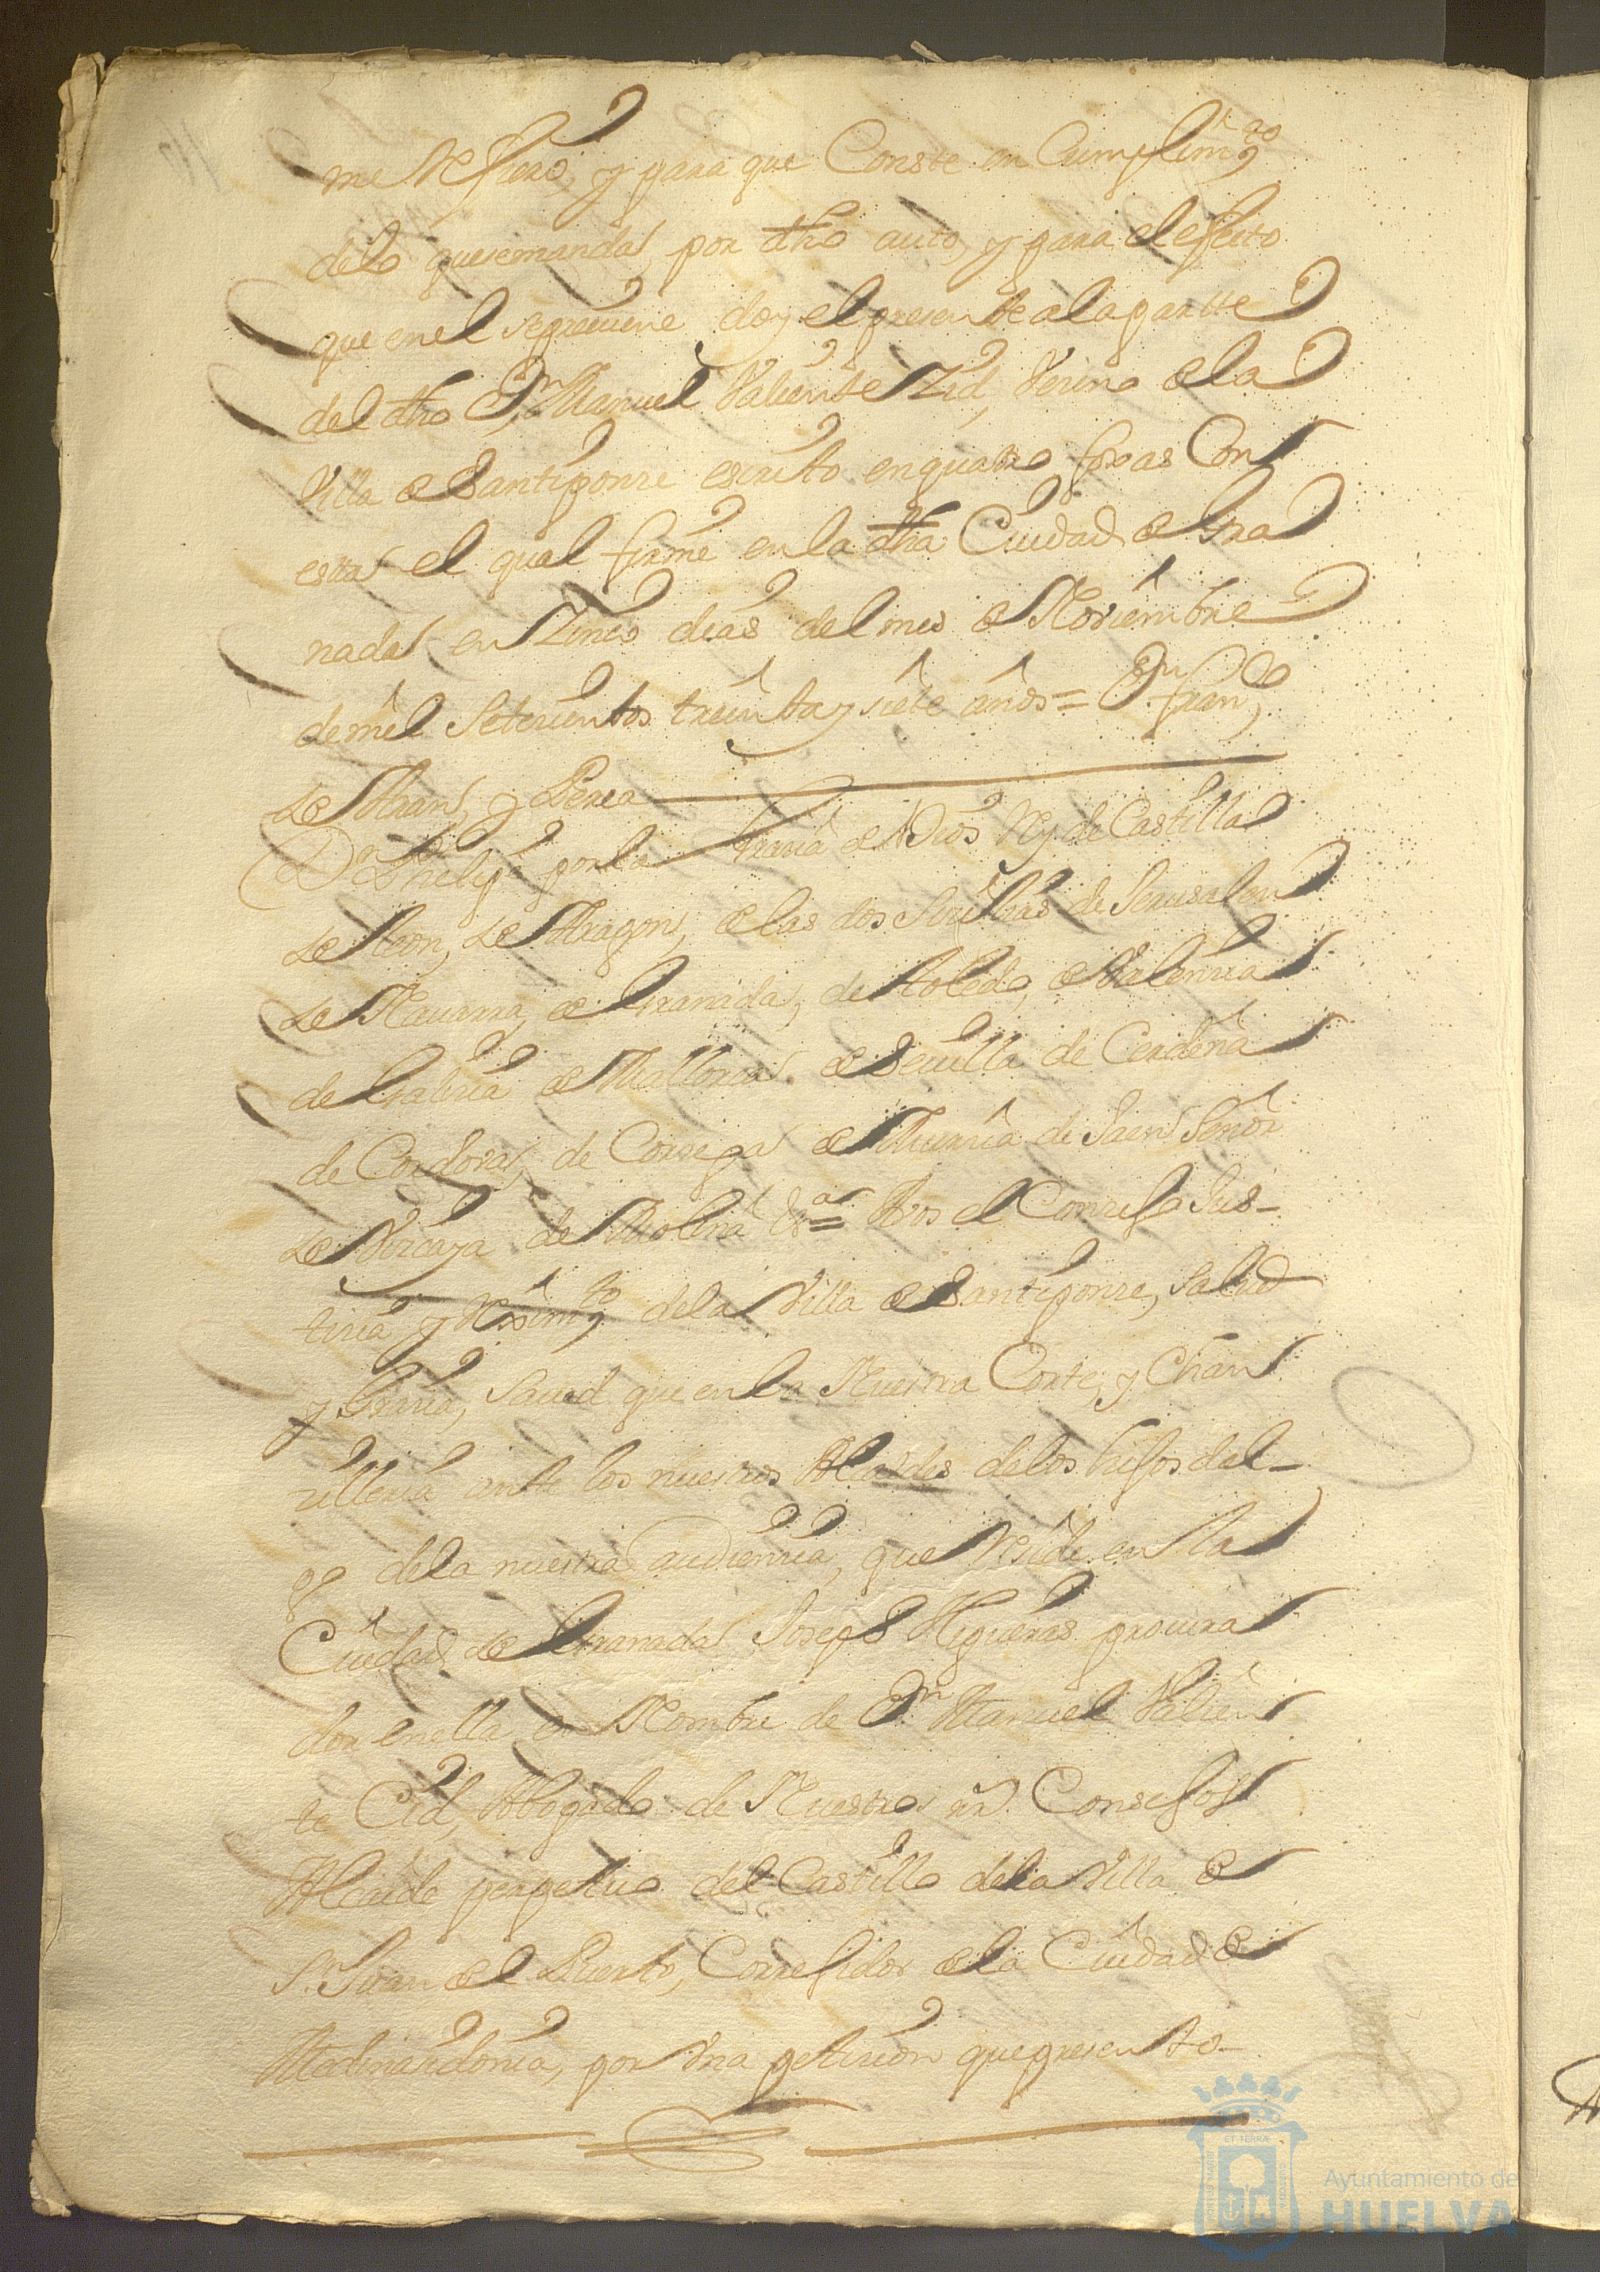 me Refiero, y para que Conste en Cumplimto
delo quesemanda por dho auto, y para el efecto
que enel seprebiene doy el presente ala partte
del dho Dn Manuel Valiente Zid, Vezino de la
Villa de Santiponze escrito enquatro foxas Con
esta el qual firme en la dha Ciudad de Gra
nada en Zinco dias del mes de Noviembre
demil Setezientos treinta y siete años = Dn Franco
de Aran, y Perea
Dn Phelipe por la Grazia de Dios Rey de Castilla
de Leon, de Aragon, de las dos Sizilias de Jerusalem
de Nauarra, de Granada, de Toledo, de Valenzia
de Galizia de Mallorca de Seuilla de Cerdeña
de Cordova, de Corzega de Murzia de Jaen Señor
de Vizcaya de Molina &a = Vos el Conzejo Jus-
tizia y Reximto dela Villa de Santiponze, salud
y Grazia, Saued que en la Nuestra Corte, y Chan
zilleria ante los nuestros Alcaldes delos hijos dal-
go dela nuestra audienzia, que Reside en la
Ciudad de Granada Joseph Higueras procura
dor enella en Nombre de Dn Manuel Valien
te Cid, Abogado de Nuestros Consejos
Alcaide perpetuo del Castillo dela Villa de
Sn Juan del Puerto, Correfidor dela Ciudad de
Medinasidonia, por Vna petizion que presento-
ET TERRAE
Ayuntamiento de
HUELVA